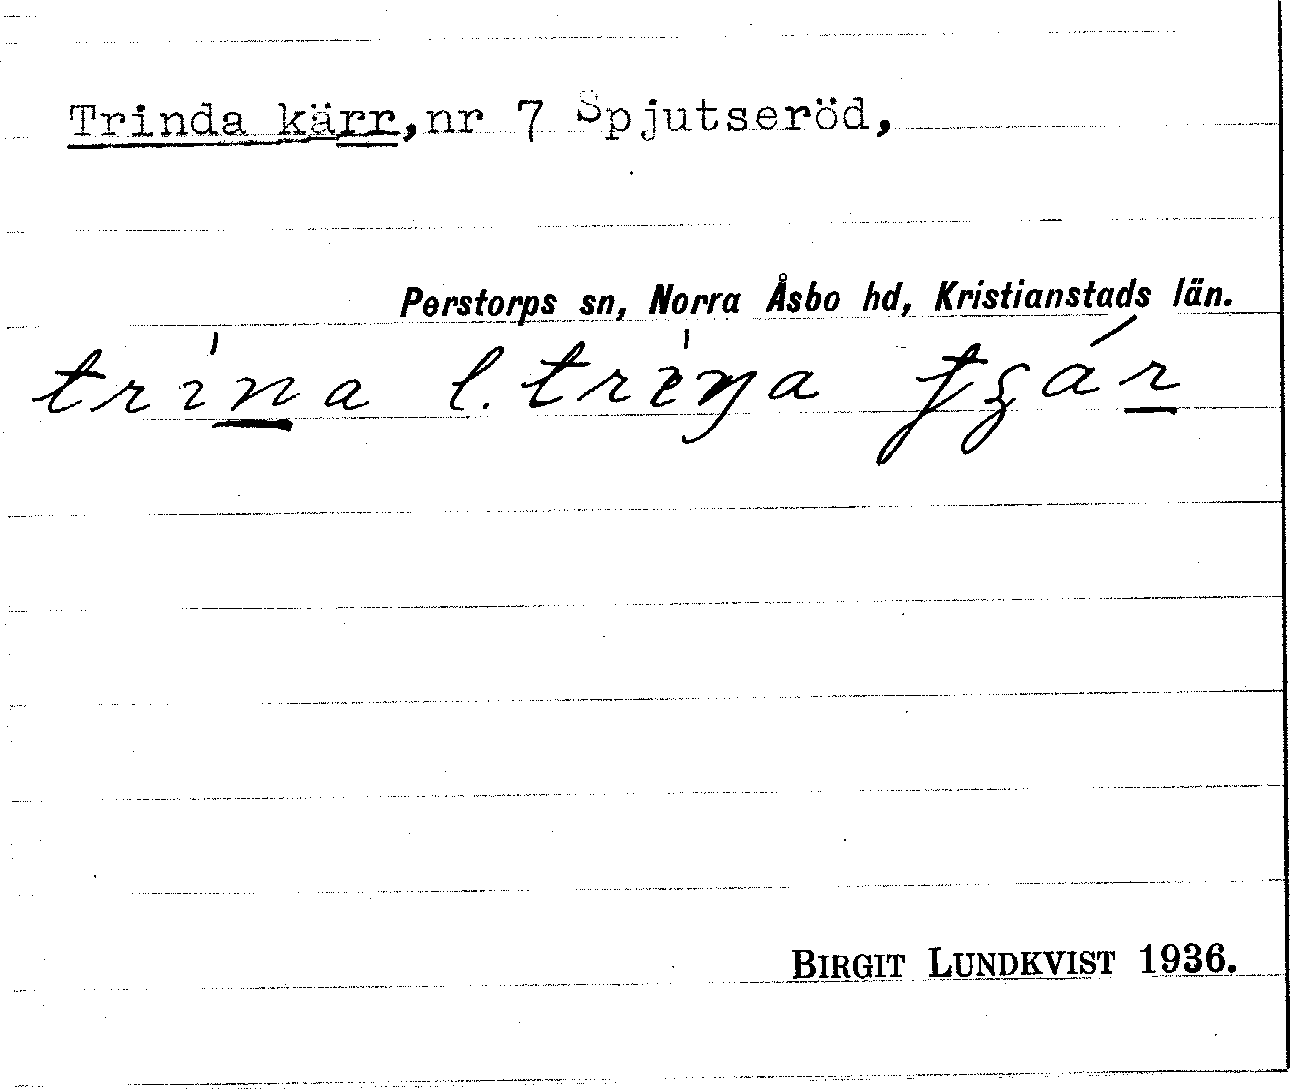 Trinda kärr, nr 7 Spjutseröd,
Perstorps sn, Norra Åsbo hd, Kristianstads län.
trìna l. trìŋa
BIRGIT LUNDKVIST 1936.